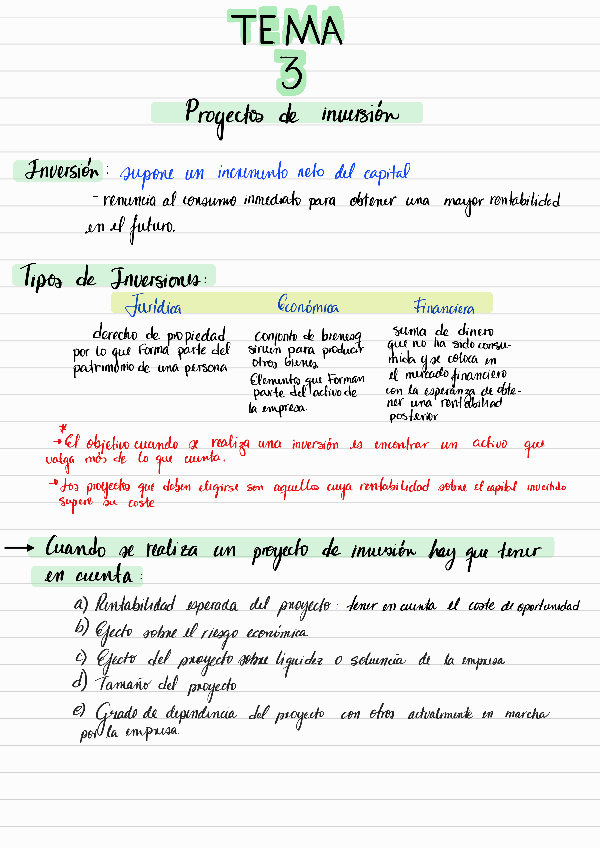 TEMA
3
Proyectos de inversión
Inversión: supone un incremento neto del capital
- renuncia al consumo inmediato para obtener una mayor rentabilidad
en el futuro.
Tipos de Inversiones:
Jurídica Económica Financiera
derecho de propiedad
por lo que forma parte del
patrimonio de una persona
conjunto de bienes q
sirven para producir
otros bienes.
Elementos que forman
parte del activo de
la empresa.
suma de dinero
que no ha sido consu-
mida y se coloca en
el mercado financiero
con la esperanza de obte-
ner una rentabilidad
posterior
*
→ El objetivo cuando se realiza una inversión es encontrar un activo que
valga más de lo que cuenta.
→ Los proyectos que deben eligirse son aquellos cuya rentabilidad sobre el capital invertido
supere su coste
→ Cuando se realiza un proyecto de inversión hay que tener
en cuenta:
a) Rentabilidad esperada del proyecto: tener en cuenta el coste de oportunidad
b) Efecto sobre el riesgo económica
c) Efecto del proyecto sobre liquidez o solvencia de la empresa
d) Tamaño del proyecto
e) Grado de dependencia del proyecto con otros actualmente en marcha
por la empresa.